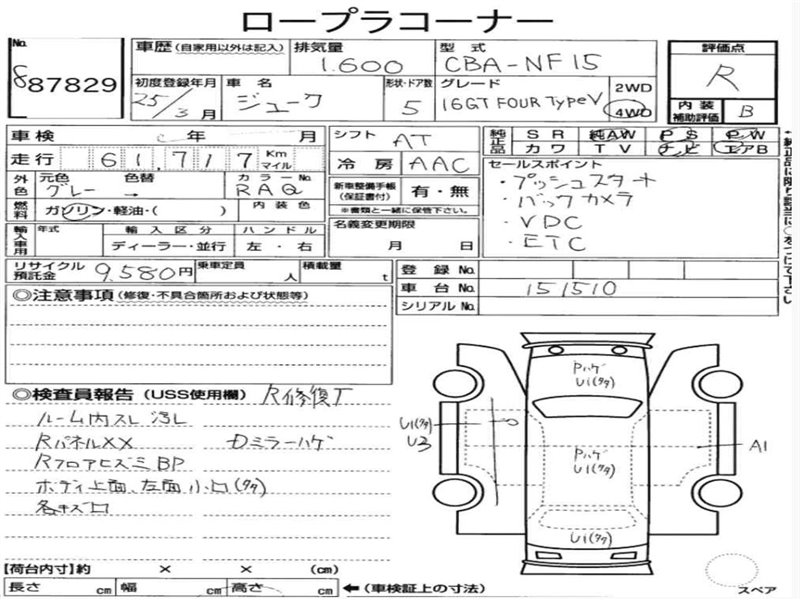 ロープラコーナー
No. 887829
車歴 (自家用以外は記入) 排気量 1.600 型式 CBA-NF15 評価点 R
初度登録年月 25/3月 車名 ジューク 形状・ドア数 5 グレード 16GT FOUR TypeV 2WD 4WD 内装補助評価 B
車検 年 月 シフト AT 純正品 SR 純AW PS PW
カワ TV ナビ エアB
走行 61,717 Km マイル 冷房 AAC セールスポイント
外色 元色 グレー 色替 → カラーNo. RAQ 新車整備手帳 (保証書付) 有・無 ・プッシュスタート
※書類と一緒に保管下さい。 ・バックカメラ
燃料 ガソリン・軽油・( ) 内装色 名義変更期限 ・VDC
輸入車用 年式 輸入区分 ディーラー・並行 ハンドル 左・右 月 日 ・ETC
リサイクル預託金 9.580円 乗車定員 人 積載量 t 登録No.
車台No. 151510
シリアルNo.
◎注意事項 (修復・不具合箇所および状態等)
◎検査員報告 (USS使用欄) R修復了
ルーム内スレ汚レ
RパネルXX Dミラーハゲ
RフロアヒズミBP
ボディ上面、左面小凹(タタ)
各キズ凹
Pハゲ
U1(タタ)
U1(タタ)
U3
Pハゲ
U1(タタ)
A1
U1(タタ)
【荷台内寸】約 × × (cm)
長さ cm 幅 cm 高さ cm ←(車検証上の寸法)
スペア